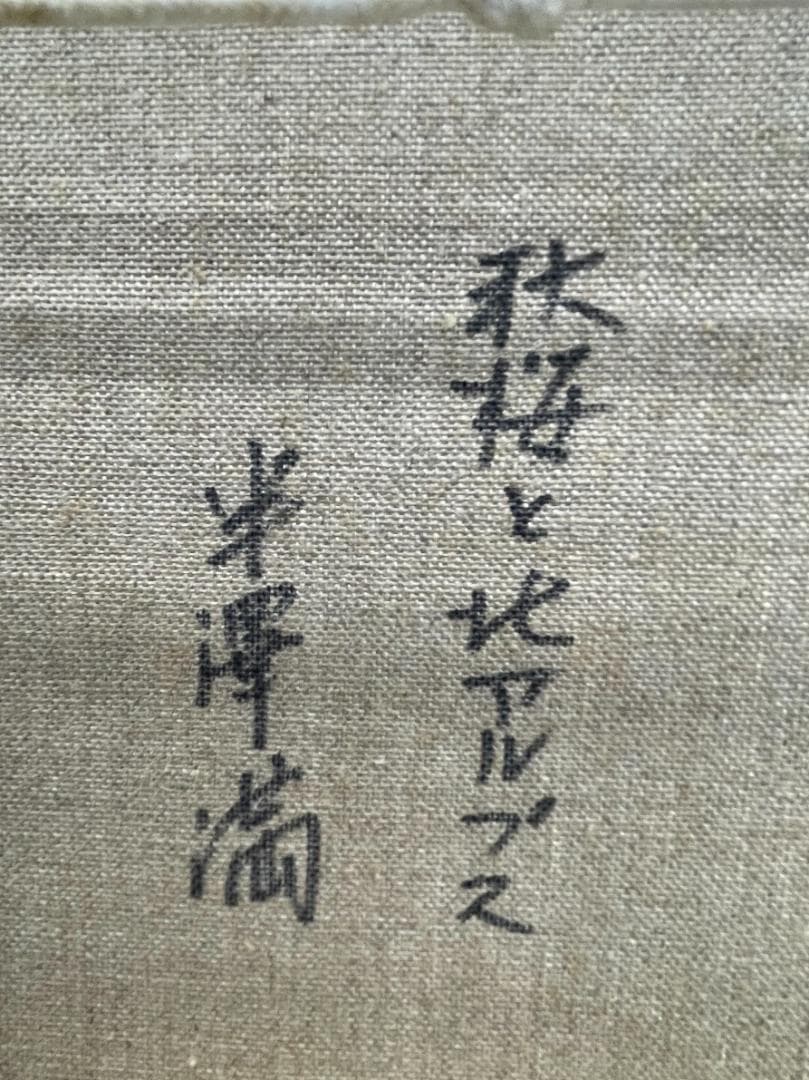 秋桜と北アルプス
米澤満